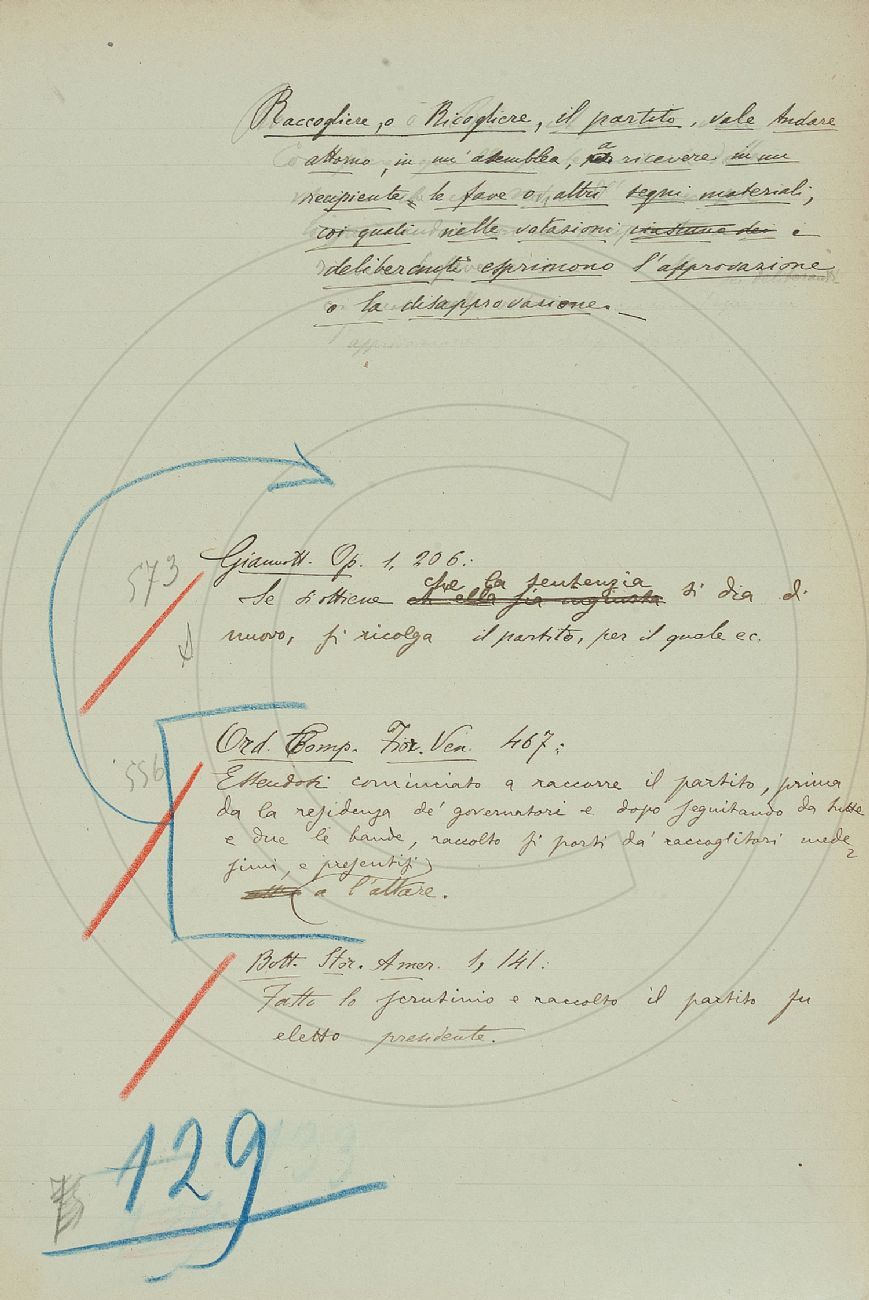 Raccogliere, o Ricogliere, il partito, vale Andare
attorno, in un' assemblea, a ricevere in un
recipiente le fave o altri segni materiali,
coi quali nelle votazioni i
deliberanti esprimono l'approvazione
o la disapprovazione.
573
Giannott. Op. 1, 206:
che la sentenzia
Se s'ottiene ch'ella sia ingiusta si dia di
nuovo, si ricolga il partito, per il quale ec.
Ord. Comp. Fior. Ven. 467:
556
Essendosi cominciato a raccorre il partito, prima
da la residenza de' governatori e dopo seguitando da tutte
e due le bande, raccolto si porti da' raccoglitori mede
simi, e presentisi
a l'altare.
Bott. Stor. Amer. 1, 141:
Fatto lo scrutinio e raccolto il partito fu
eletto presidente.
129